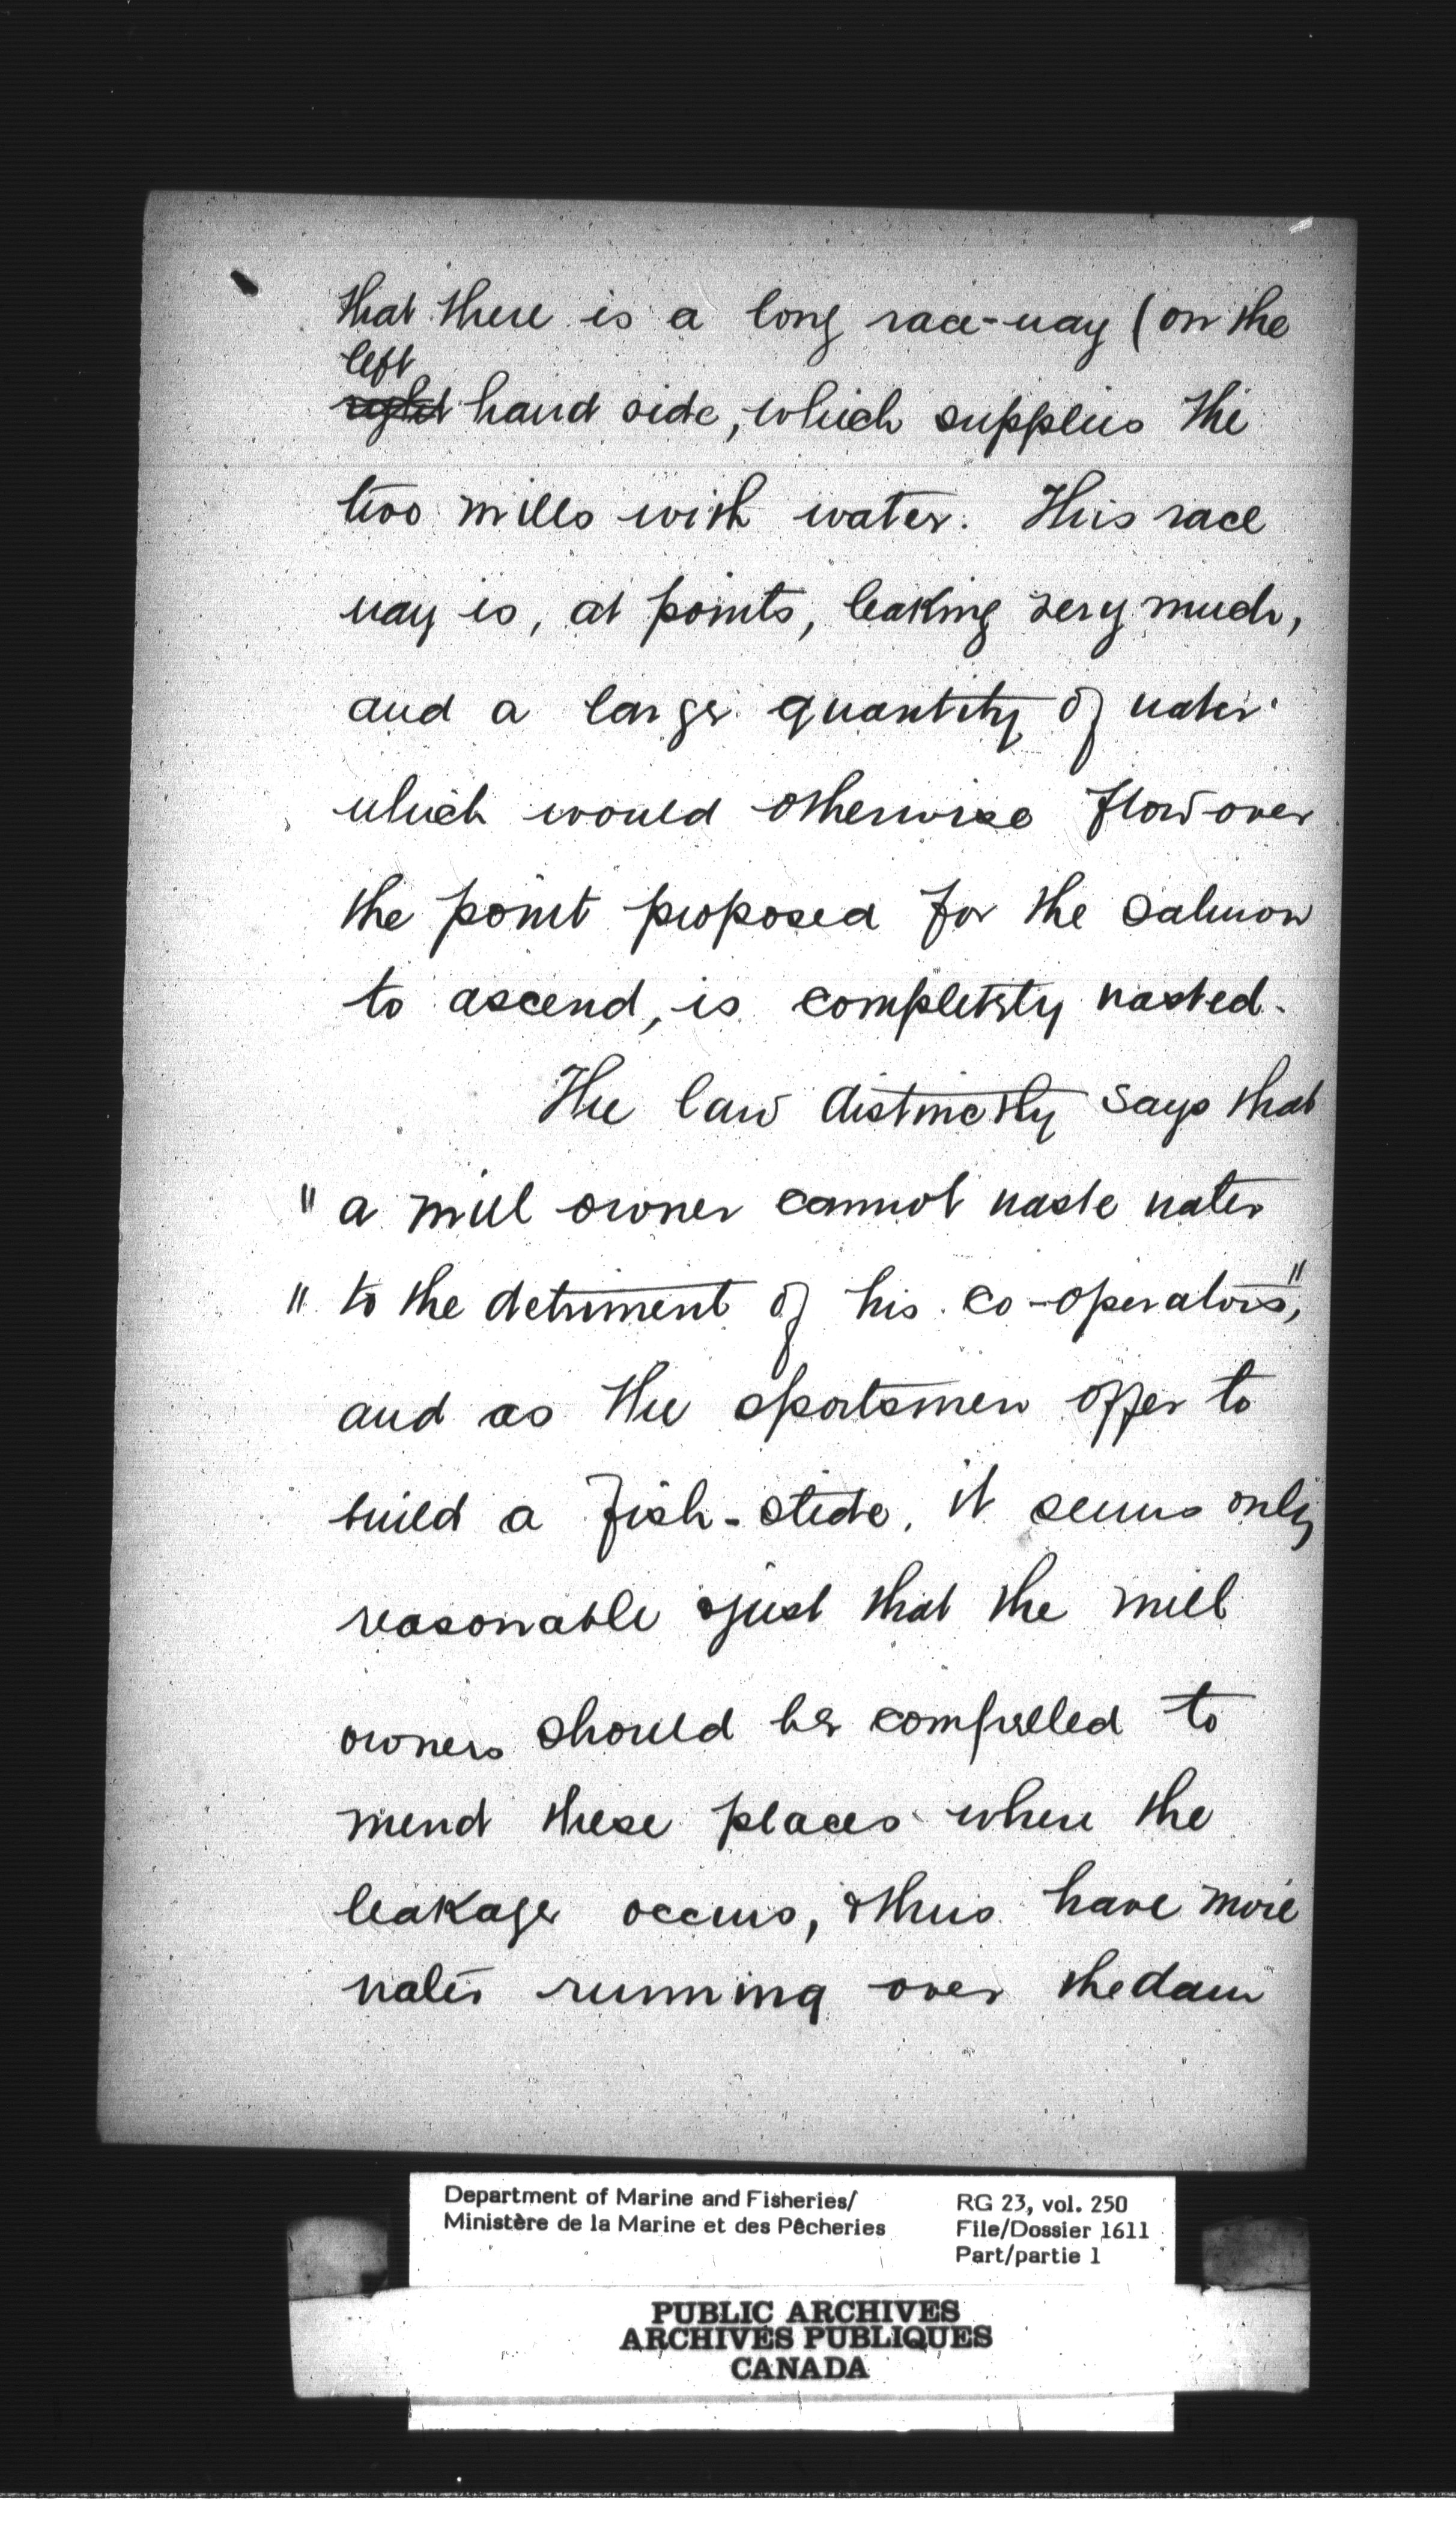 that there is a long race-way (on the
left
right hand side, which supplies the
two mills with water. This race
way is, at points, leaking very much,
and a large quantity of water
which would otherwise flow over
the point proposed for the salmon
to ascend, is completely wasted.
The law distinctly says that
" a mill owner cannot waste water
" to the detriment of his co-operators,"
and as the sportsmen offer to
build a fish-slide, it seems only
reasonable & just that the mill
owners should be compelled to
mend these places where the
leakage occurs, & thus have more
water running over the dam
Department of Marine and Fisheries/
Ministère de la Marine et des Pêcheries
RG 23, vol. 250
File/Dossier 1611
Part/partie 1
PUBLIC ARCHIVES
ARCHIVES PUBLIQUES
CANADA